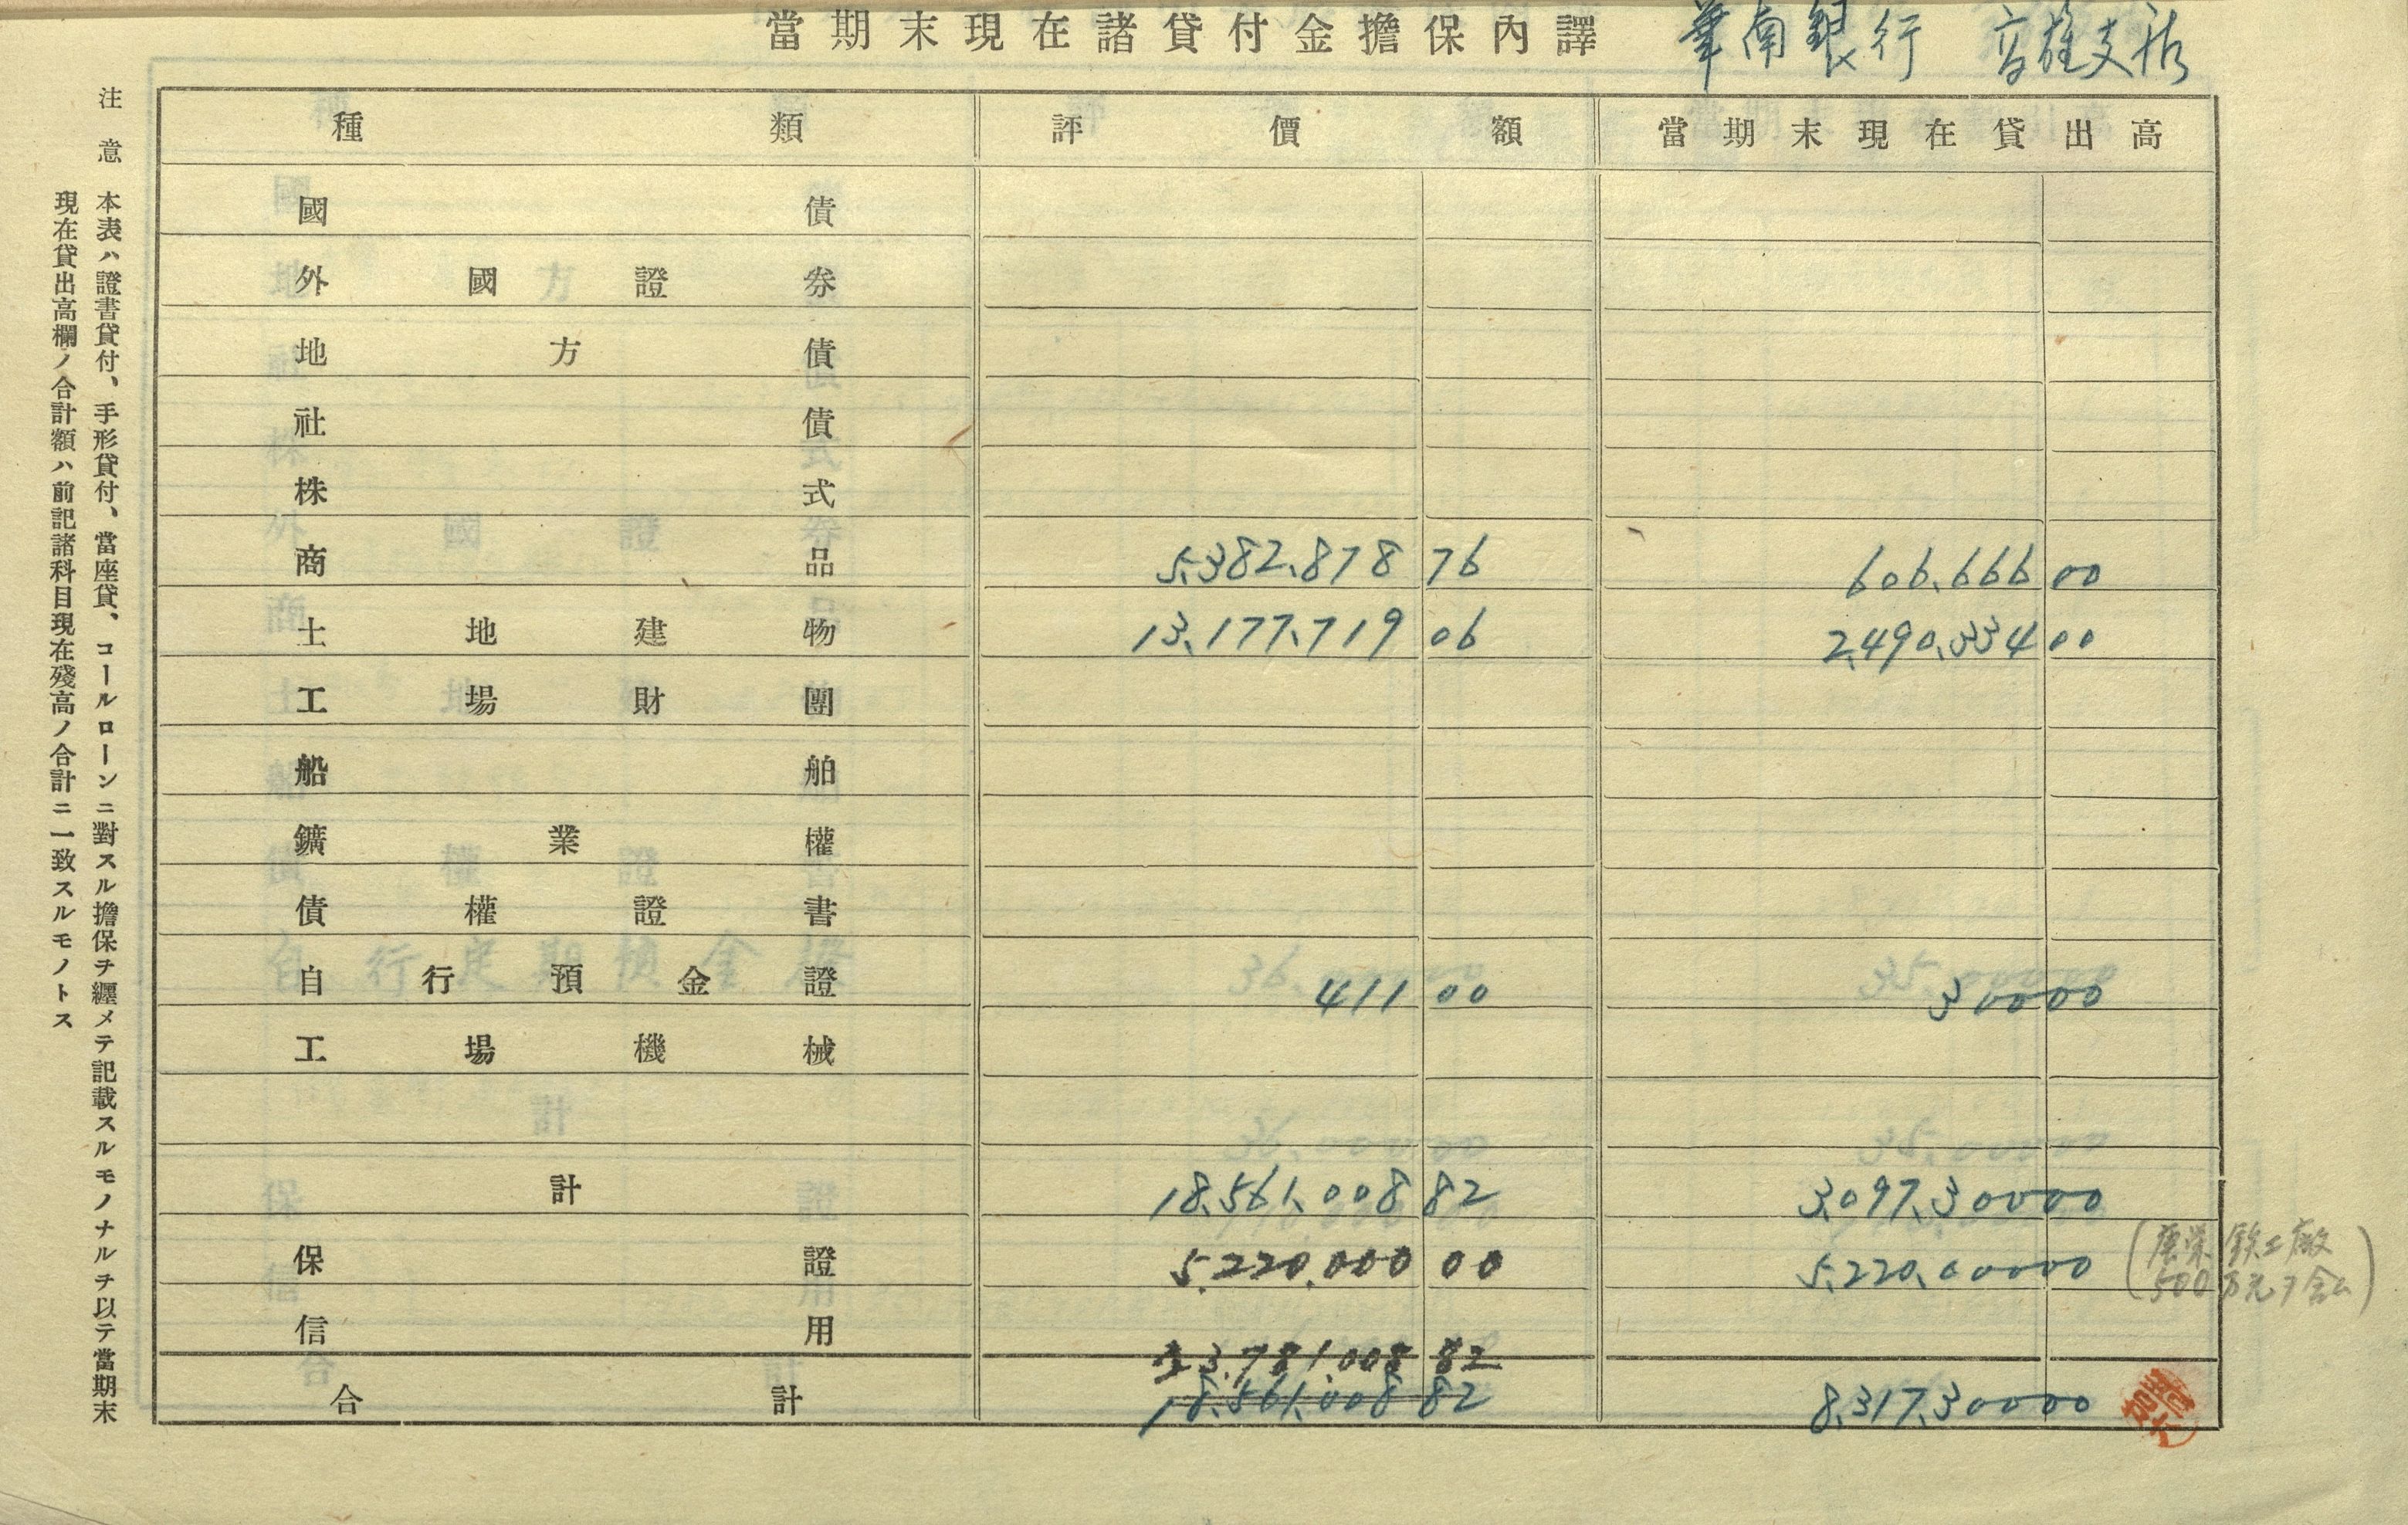 當期末現在諸貸付金擔保內譯 華南銀行 高雄支店
種類 評價額 當期末現在貸出高
國債
外國證券
地方債
社債
株式
商品 5,382,878 76 606,666 00
土地建物 13,177,719 06 2,490,334 00
工場財團
船舶
鑛業權
債權證書
自行預金證 411 00 300 00
工場機械
計 18,561,008 82 3,097,300 00
保證 5,220,000 00 5,220,000 00
信用
23,781,008 82
合計 18,561,008 82 8,317,300 00
(唐榮鉄工廠
500万元ヲ含ム)
注意
本表ハ證書貸付、手形貸付、當座貸、コールローンニ對スル擔保ヲ纒メテ記載スルモノナルヲ以テ當期末
現在貸出高欄ノ合計額ハ前記諸科目現在殘高ノ合計ニ一致スルモノトス